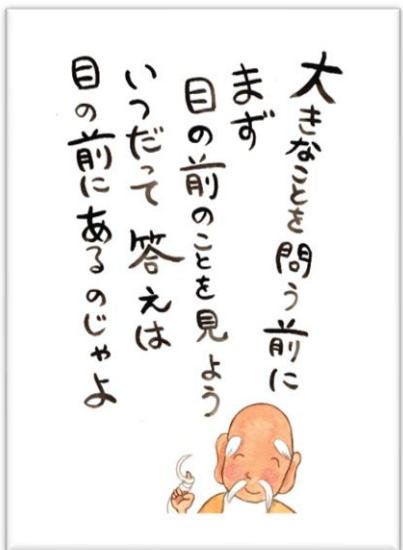 大きなことを問う前に
まず
目の前のことを見よう
いつだって答えは
目の前にあるのじゃよ